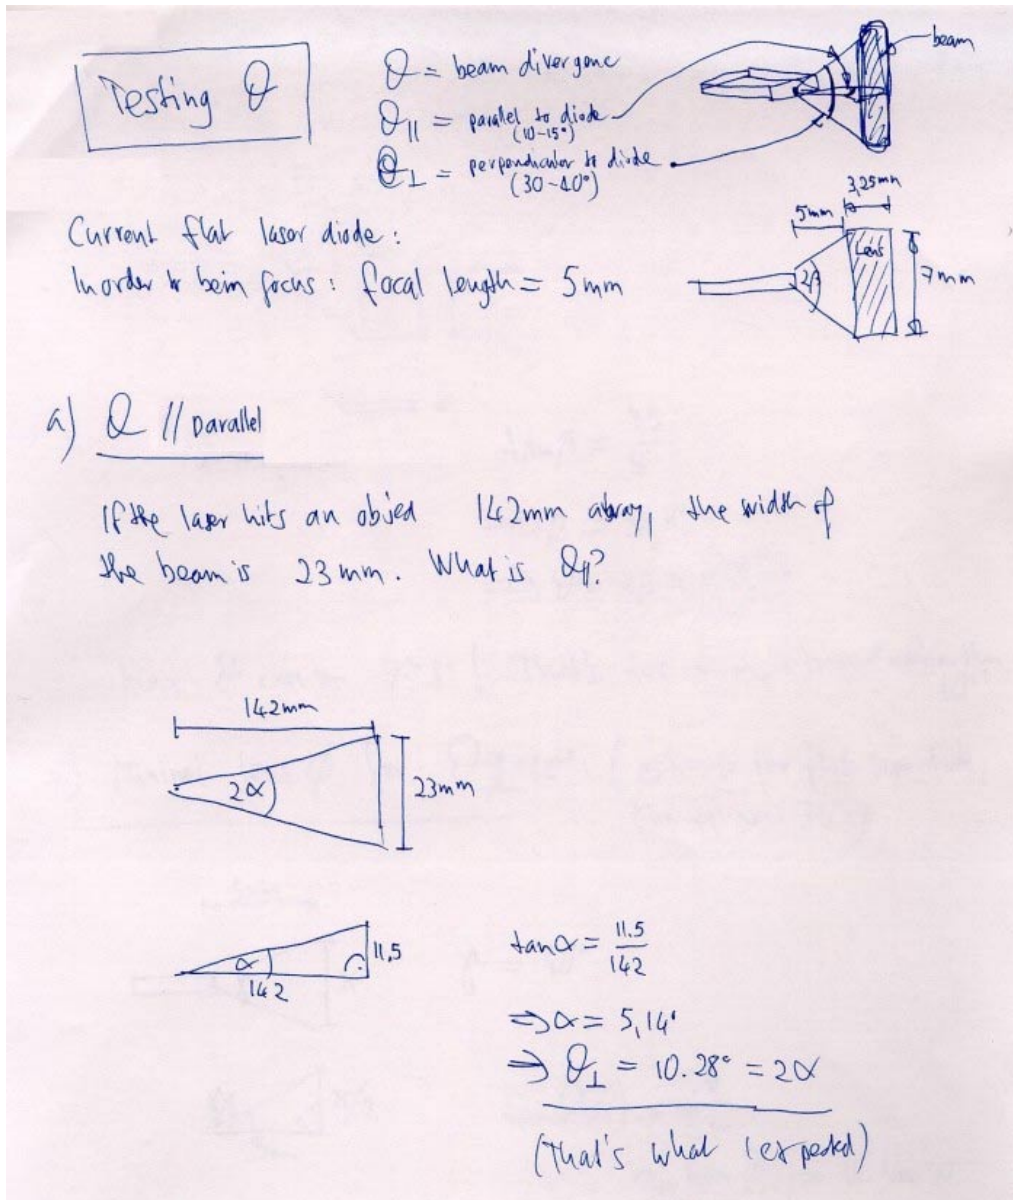 Testing θ
θ = beam divergenc
θ∥ = parallel to diode
(10-15°)
θ⊥ = perpendicular to diode
(30-40°)
beam
Current flat laser diode:
In order to beim focus: focal length = 5mm
3,25mm
5mm
Lens
2β
7mm
a) θ // parallel
If the laser hits an object 142mm away, the width of
the beam is 23mm. What is θ∥?
142mm
2α
23mm
α
11,5
142
tanα = 11.5/142
⇒ α = 5,14°
⇒ θ⊥ = 10.28° = 2α
(That's what I expected)